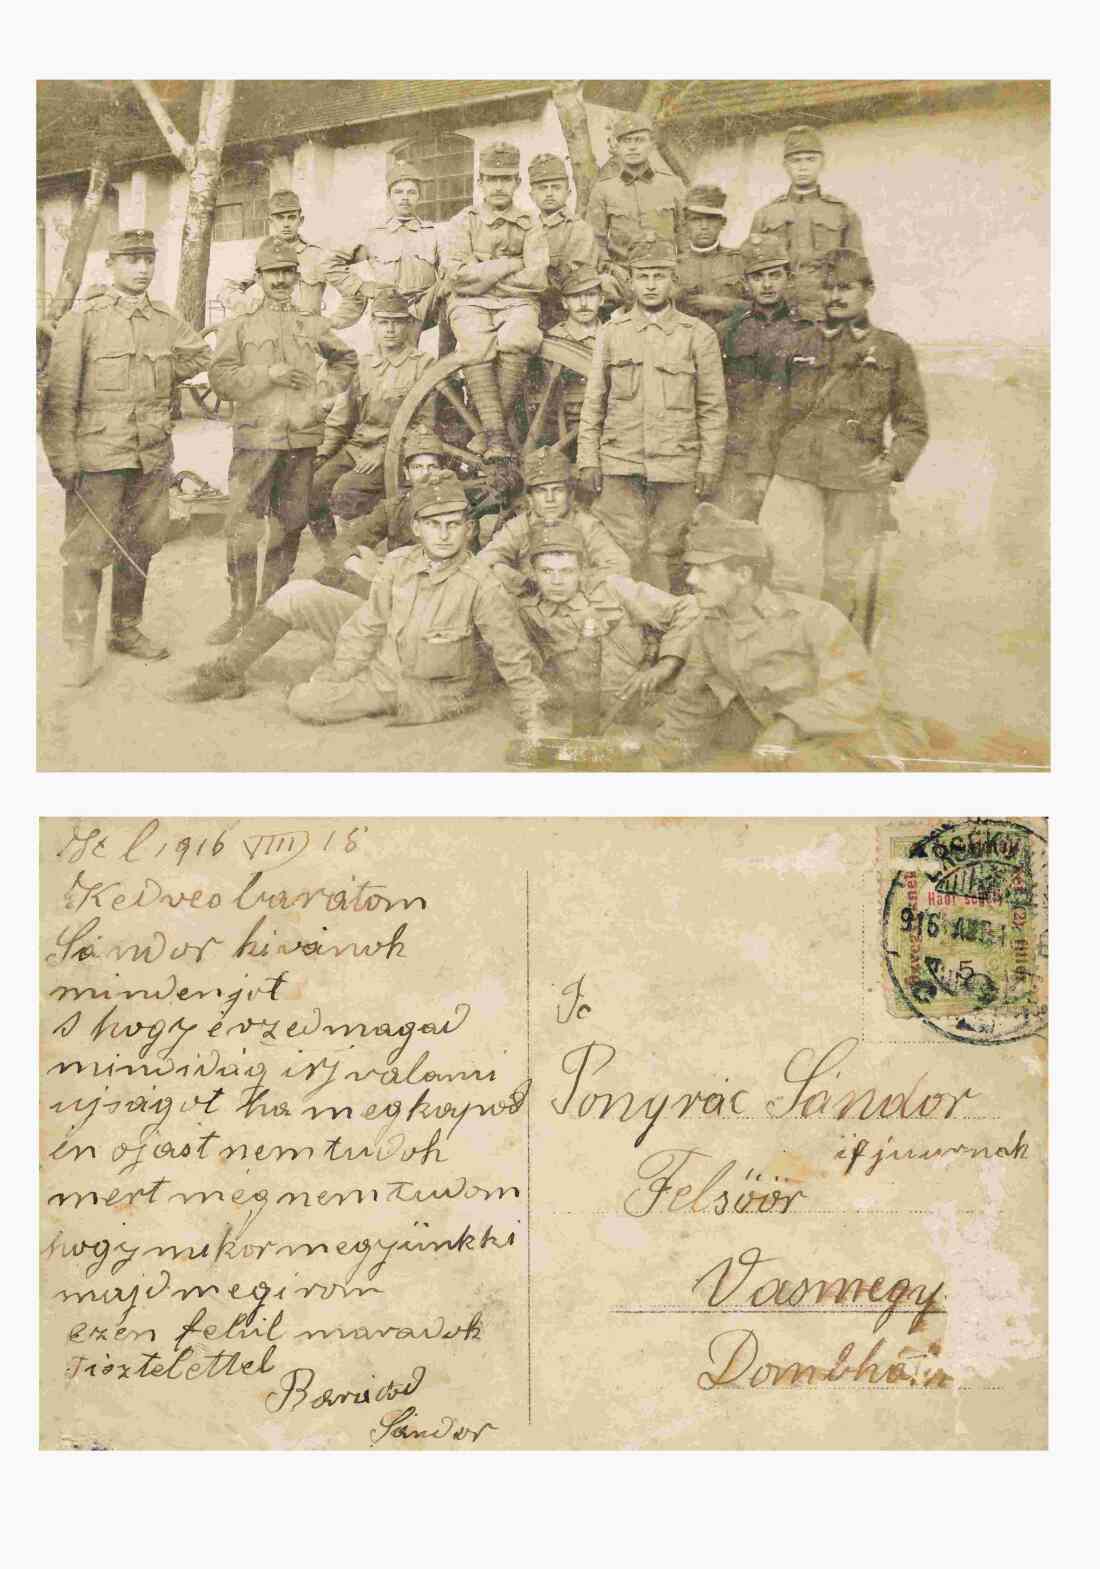 1916 VIII 18
Kedves barátom
Sándor kivánok
mindenjot
s hogy érzedmagad
mindidág irj valami
ujságot ha megkapod
én ojast nem tudok
mert még nem tudom
hogy mikor megyünk ki
majd megirom
ezen felül maradok
Tisztelettel
Barátod
Sándor
916
5
Tc
Ponyrác Sándor
ifjuurnak
Felsöör
Vasmegy